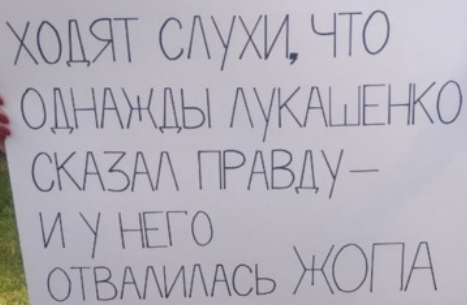 ХОДЯТ СЛУХИ, ЧТО
ОДНАЖДЫ ЛУКАШЕНКО
СКАЗАЛ ПРАВДУ —
И У НЕГО
ОТВАЛИЛАСЬ ЖОПА